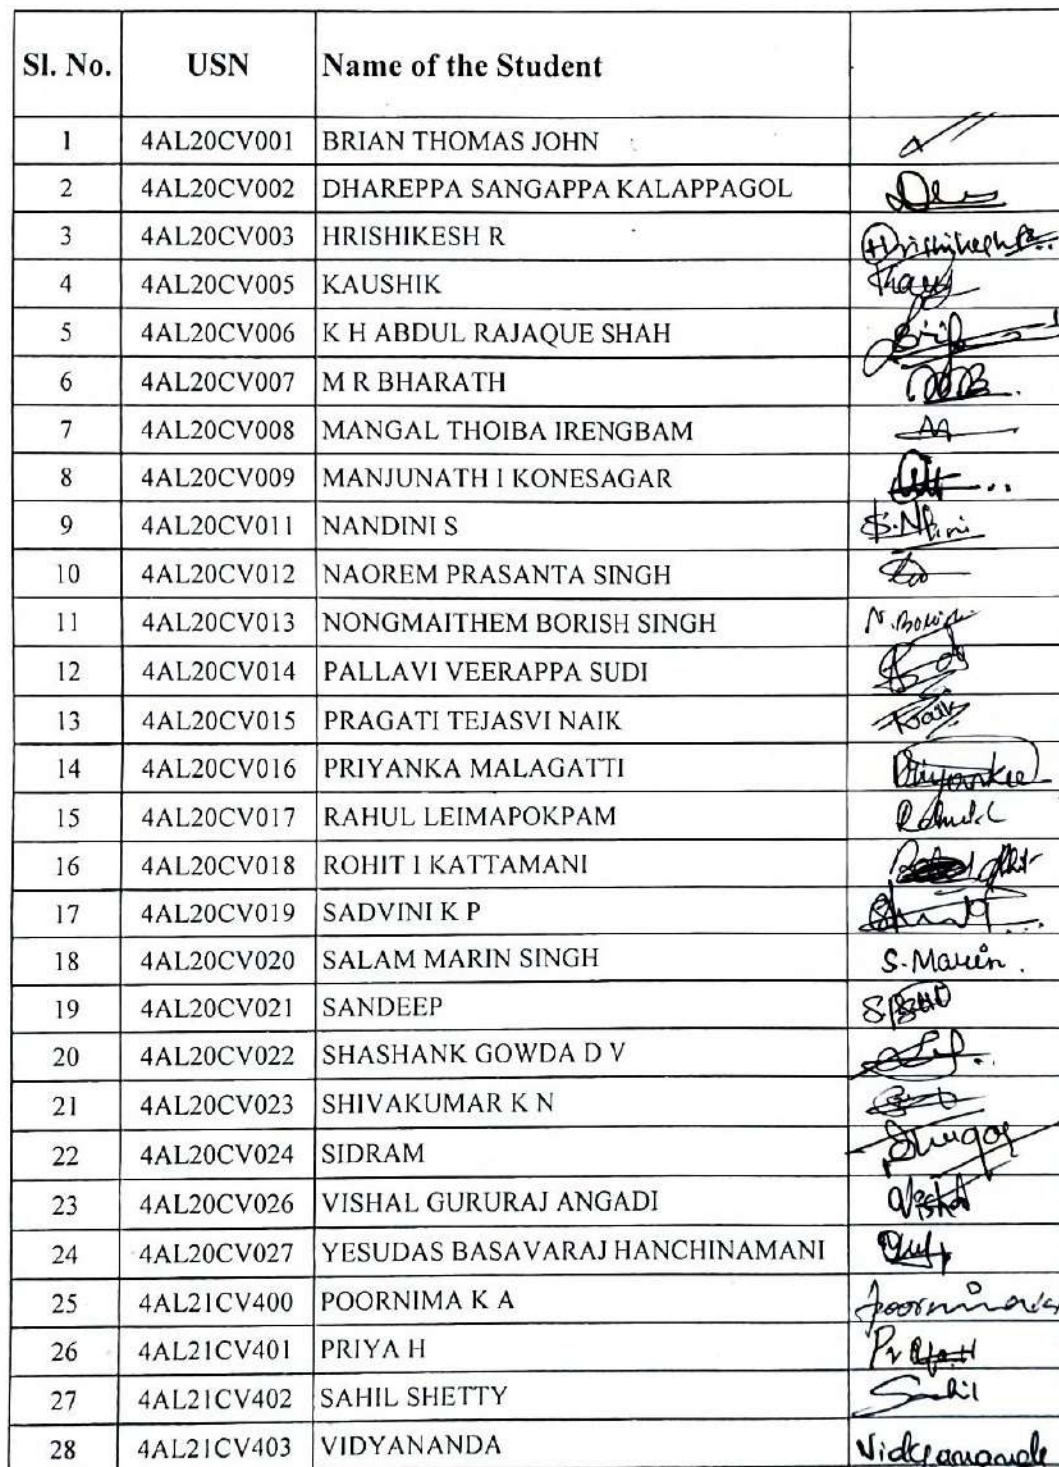 Sl. No. USN Name of the Student
1 4AL20CV001 BRIAN THOMAS JOHN
2 4AL20CV002 DHAREPPA SANGAPPA KALAPPAGOL
3 4AL20CV003 HRISHIKESH R
4 4AL20CV005 KAUSHIK
5 4AL20CV006 K H ABDUL RAJAQUE SHAH
6 4AL20CV007 M R BHARATH
7 4AL20CV008 MANGAL THOIBA IRENGBAM
8 4AL20CV009 MANJUNATH I KONESAGAR
9 4AL20CV011 NANDINI S
10 4AL20CV012 NAOREM PRASANTA SINGH
11 4AL20CV013 NONGMAITHEM BORISH SINGH
12 4AL20CV014 PALLAVI VEERAPPA SUDI
13 4AL20CV015 PRAGATI TEJASVI NAIK
14 4AL20CV016 PRIYANKA MALAGATTI
15 4AL20CV017 RAHUL LEIMAPOKPAM
16 4AL20CV018 ROHIT I KATTAMANI
17 4AL20CV019 SADVINI K P
18 4AL20CV020 SALAM MARIN SINGH S. Marin.
19 4AL20CV021 SANDEEP
20 4AL20CV022 SHASHANK GOWDA D V
21 4AL20CV023 SHIVAKUMAR K N
22 4AL20CV024 SIDRAM
23 4AL20CV026 VISHAL GURURAJ ANGADI
24 4AL20CV027 YESUDAS BASAVARAJ HANCHINAMANI
25 4AL21CV400 POORNIMA K A
26 4AL21CV401 PRIYA H
27 4AL21CV402 SAHIL SHETTY Sahil
28 4AL21CV403 VIDYANANDA